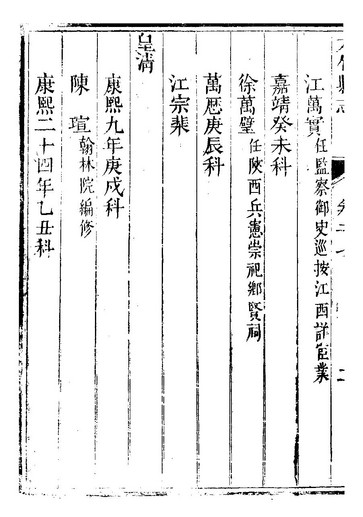 江萬實任監察御史巡按江西詳宦業
嘉靖癸未科
徐萬璧任陜西兵憲崇祀鄉賢祠
萬厯庚辰科
江宗棐
皇清
康熙九年庚戌科
陳瑄翰林院編修
康熙二十四年乙丑科